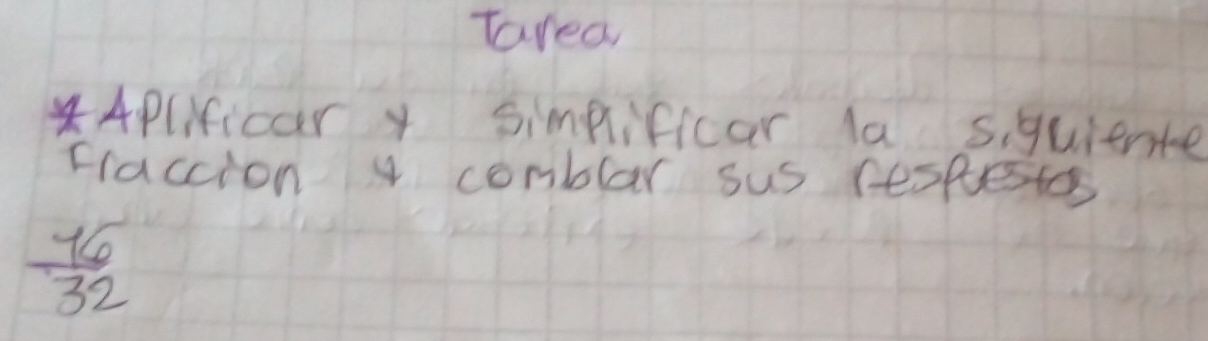 Tarea
* Aplificar y simplificar la siguiente
fraccion y comblar sus respuestas
16
32